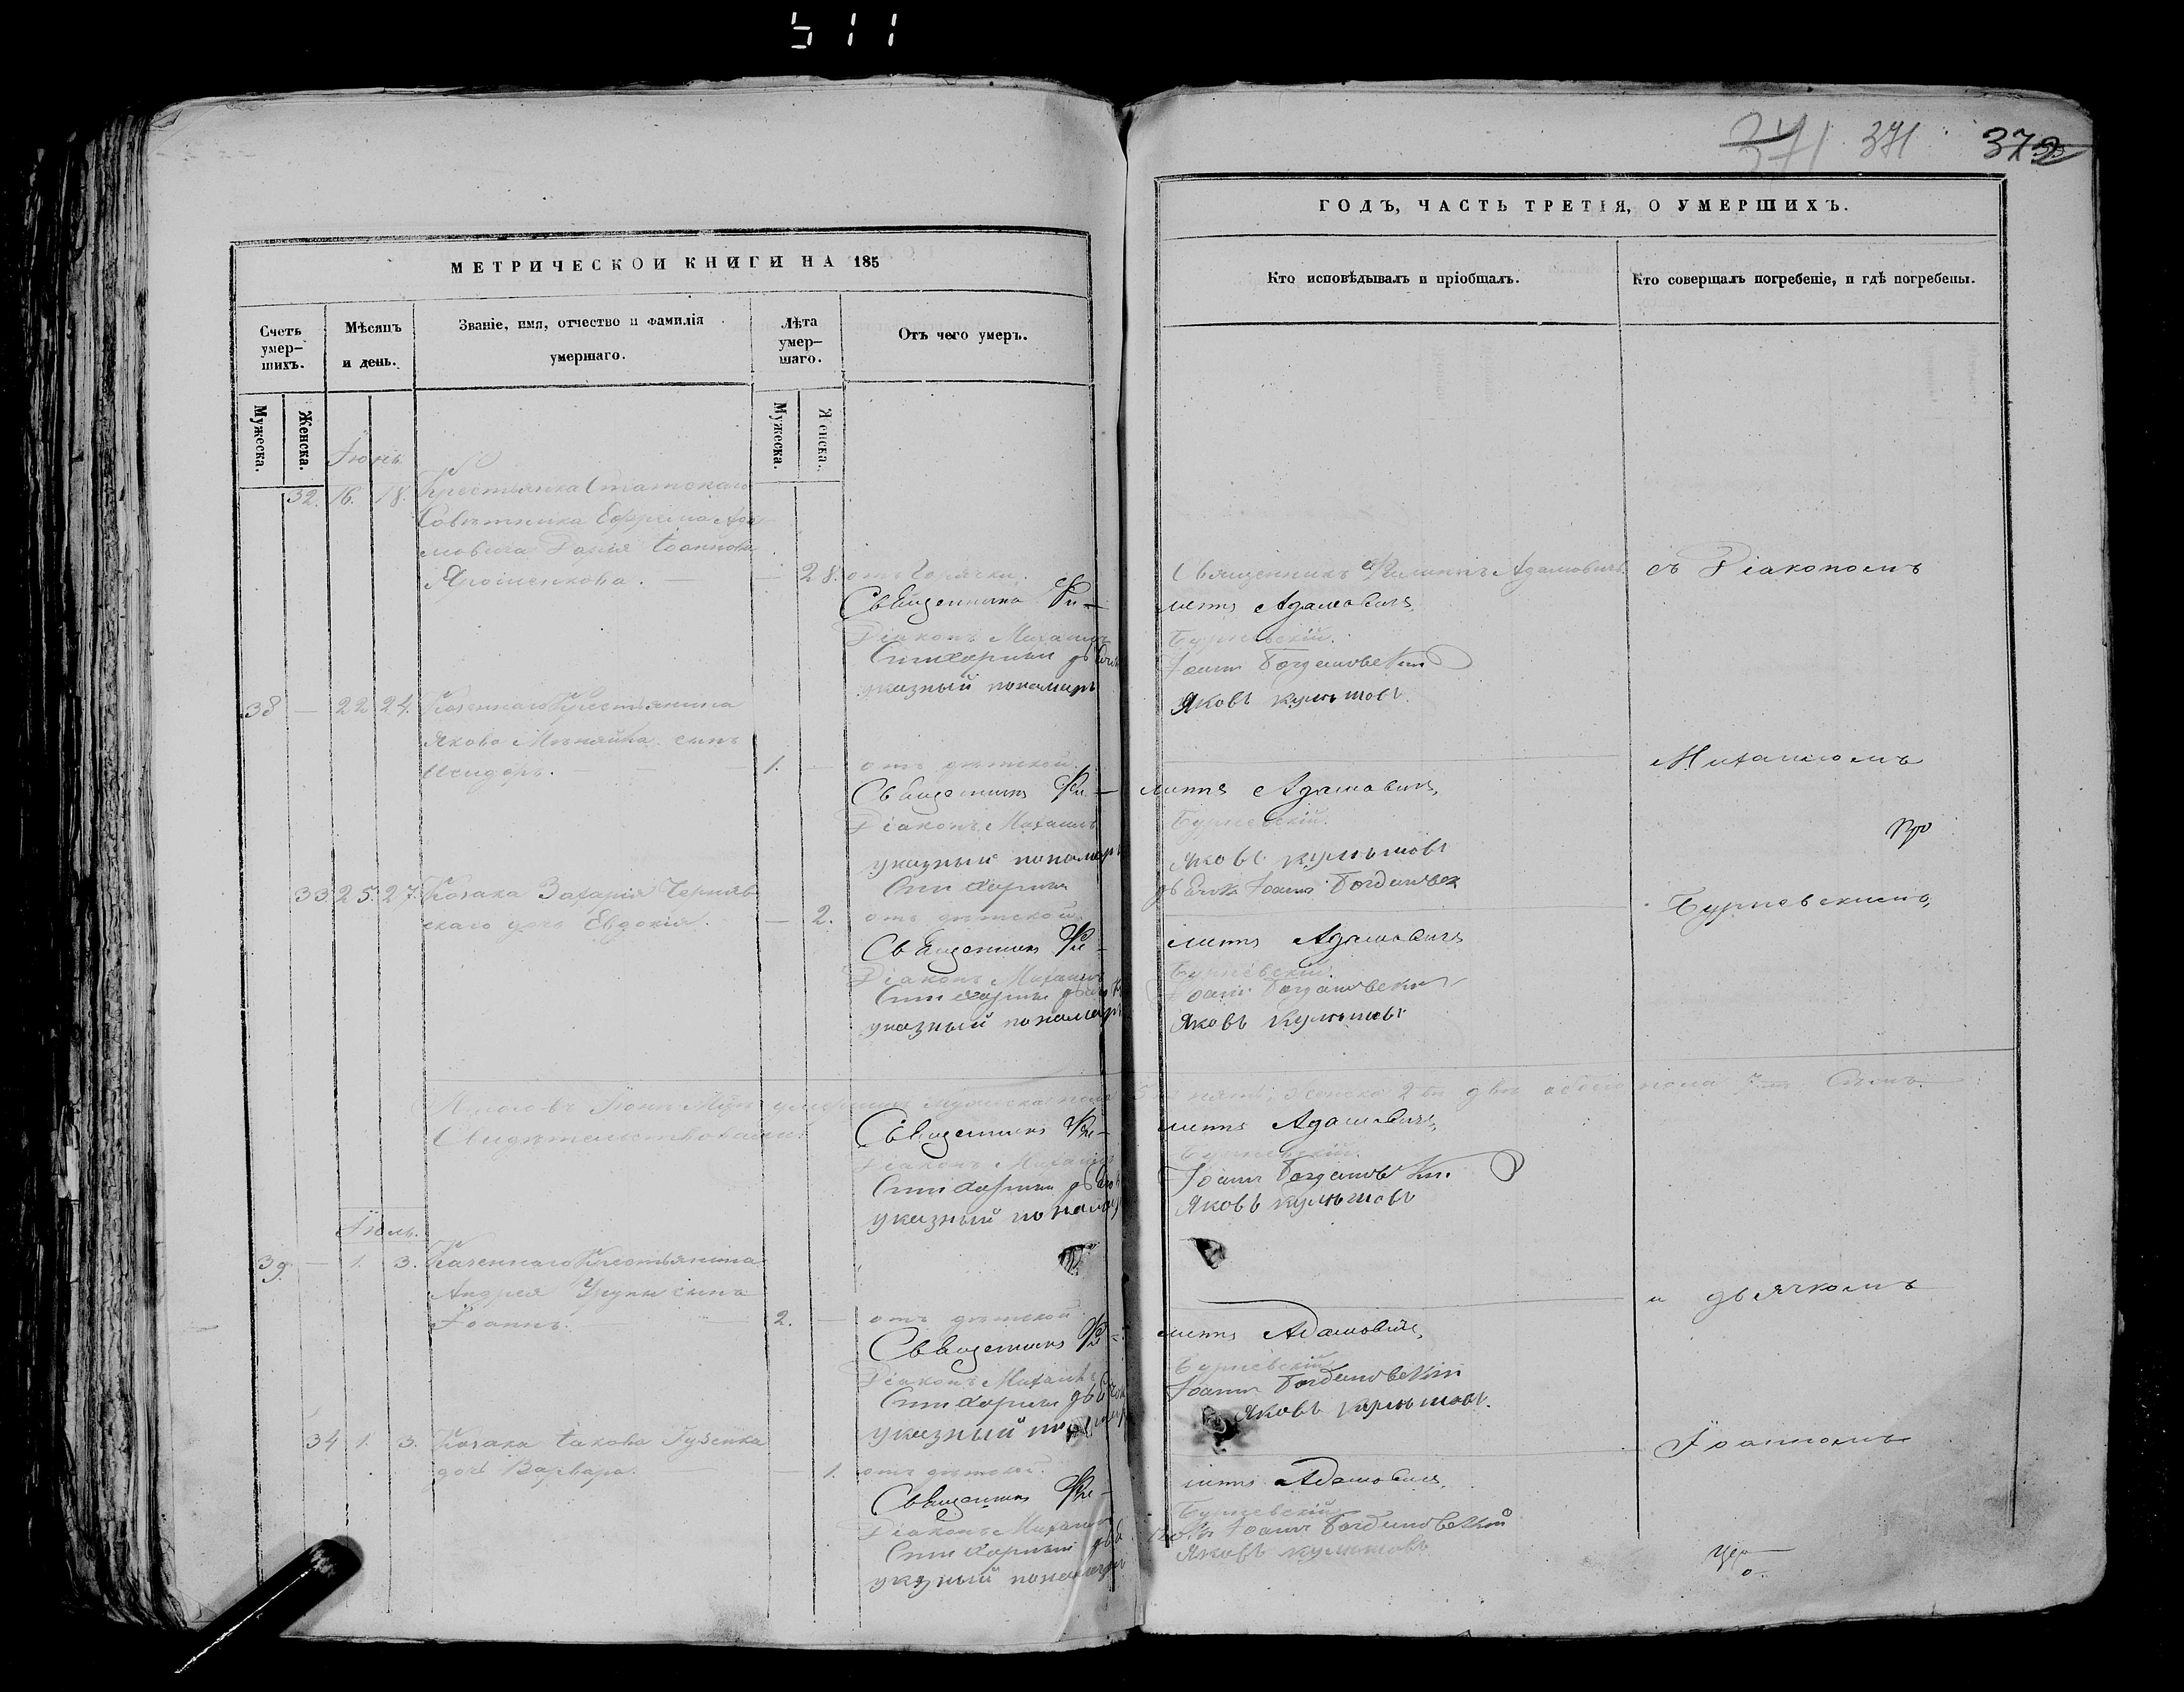 511
371 371 372
МЕТРИЧЕСКОЙ КНИГИ НА 185
Счетъ умер-
шихъ.
Мѣсяцъ
и день.
Званіе, имя, отчество и фамилія
умершаго.
Лѣта
умер-
шаго.
Отъ чего умеръ.
Мужеска.
Женска.
Мужеска.
Женска.
Іюнь
32. 16. 18. Крестьянка Статскаго
Совѣтника Ефрема Ада-
мовича Дарія Іоаннова
Ярошенкова. 28. отъ Горячки.
Священникъ Фи-
Діаконъ Михаилъ
Стихарный дьячокъ
указный пономарь
38 — 22 24. Казеннаго Крестьянина
Якова сынъ
Исидоръ. — 1. — отъ дѣтской.
Священникъ Фи-
Діаконъ Михаилъ
указный пономарь
Стихарный
33 25. 27. Козака Захарія Черняв-
скаго дочь Евдокія. — 2. отъ дѣтской
Священникъ Фи-
Діаконъ Михаилъ
Стихарный дьячокъ
указный пономарь
Итого въ Іюнѣ умершихъ мужеска пола
Свидѣтельствовали:
Священникъ Фи-
Діаконъ Михаилъ
Стихарный дьячокъ
указный пономарь
Іюль.
39. — 1. 3. Казеннаго Крестьянина
Андрея сынъ
Іоаннъ. 2. — отъ дѣтской
Священникъ Фи-
Діаконъ Михаилъ
Стихарный дьячокъ
указный
34 1. 3. Козака Іакова Гузенка
дочь Варвара. — 1. отъ дѣтской.
Священникъ Фи-
Діаконъ Михаилъ
Стихарный
указный пономарь
ГОДЪ, ЧАСТЬ ТРЕТІЯ, О УМЕРШИХЪ.
Кто исповѣдывалъ и пріобщалъ.
Кто совершалъ погребеніе, и гдѣ погребены.
Священникъ Филиппъ Адамовичъ. съ Діакономъ
липпъ Адамовичъ,
Бурневскій.
Іоаннъ Богдановскій
Яковъ
Михаиломъ
липпъ Адамовичъ,
Бурневскій.
Яковъ
дьячокъ Іоаннъ Богдановск
Бурневскимъ,
липпъ Адамовичъ
Бурневскій.
Іоаннъ Богдановскій
Яковъ
5 пять, женска 2 двѣ обоего пола 7 Семь.
липпъ Адамовичъ,
Бурневскій.
Іоаннъ Богдановскій.
Яковъ
и дьячкомъ
липпъ Адамовичъ,
Бурневскій
Іоаннъ Богдановскій
Яковъ
Іоанномъ
липпъ Адамовичъ,
Бурневскій
Іоаннъ Богдановскій
Яковъ